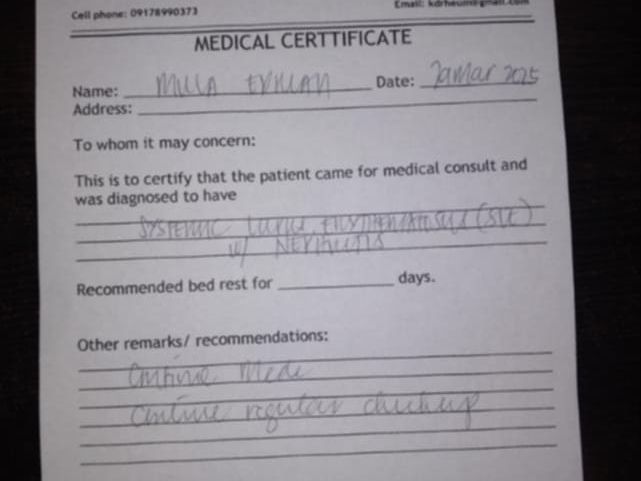 Cell phone: 09178990373
Email: kdrheum@gmail.com
MEDICAL CERTTIFICATE
Name: Date: Mar 2025
Address:
To whom it may concern:
This is to certify that the patient came for medical consult and
was diagnosed to have
SYSTEMIC LUPUS ERYTHEMATOSUS (SLE)
w/ NEPHRITIS
Recommended bed rest for days.
Other remarks/ recommendations:
Continue Meds
Continue regular checkup